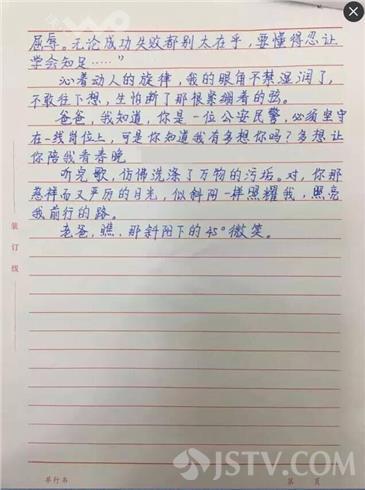 屈辱。无论成功失败都别太在乎，要懂得忍让
学会知足……”
沁着动人的旋律，我的眼角不禁湿润了，
不敢往下想，生怕断了那根紧绷着的弦。
爸爸，我知道，你是一位公安民警，必须坚守
在一线岗位上，可是你知道我有多想你吗？多想让
你陪我看春晚
听完歌，仿佛洗涤了万物的污垢。对，你那
慈祥而又严厉的目光，似斜阳一样照耀我，照亮
我前行的路。
老爸，瞧，那斜阳下的45°微笑。
装订线
单行书
第 页
JSTV.COM